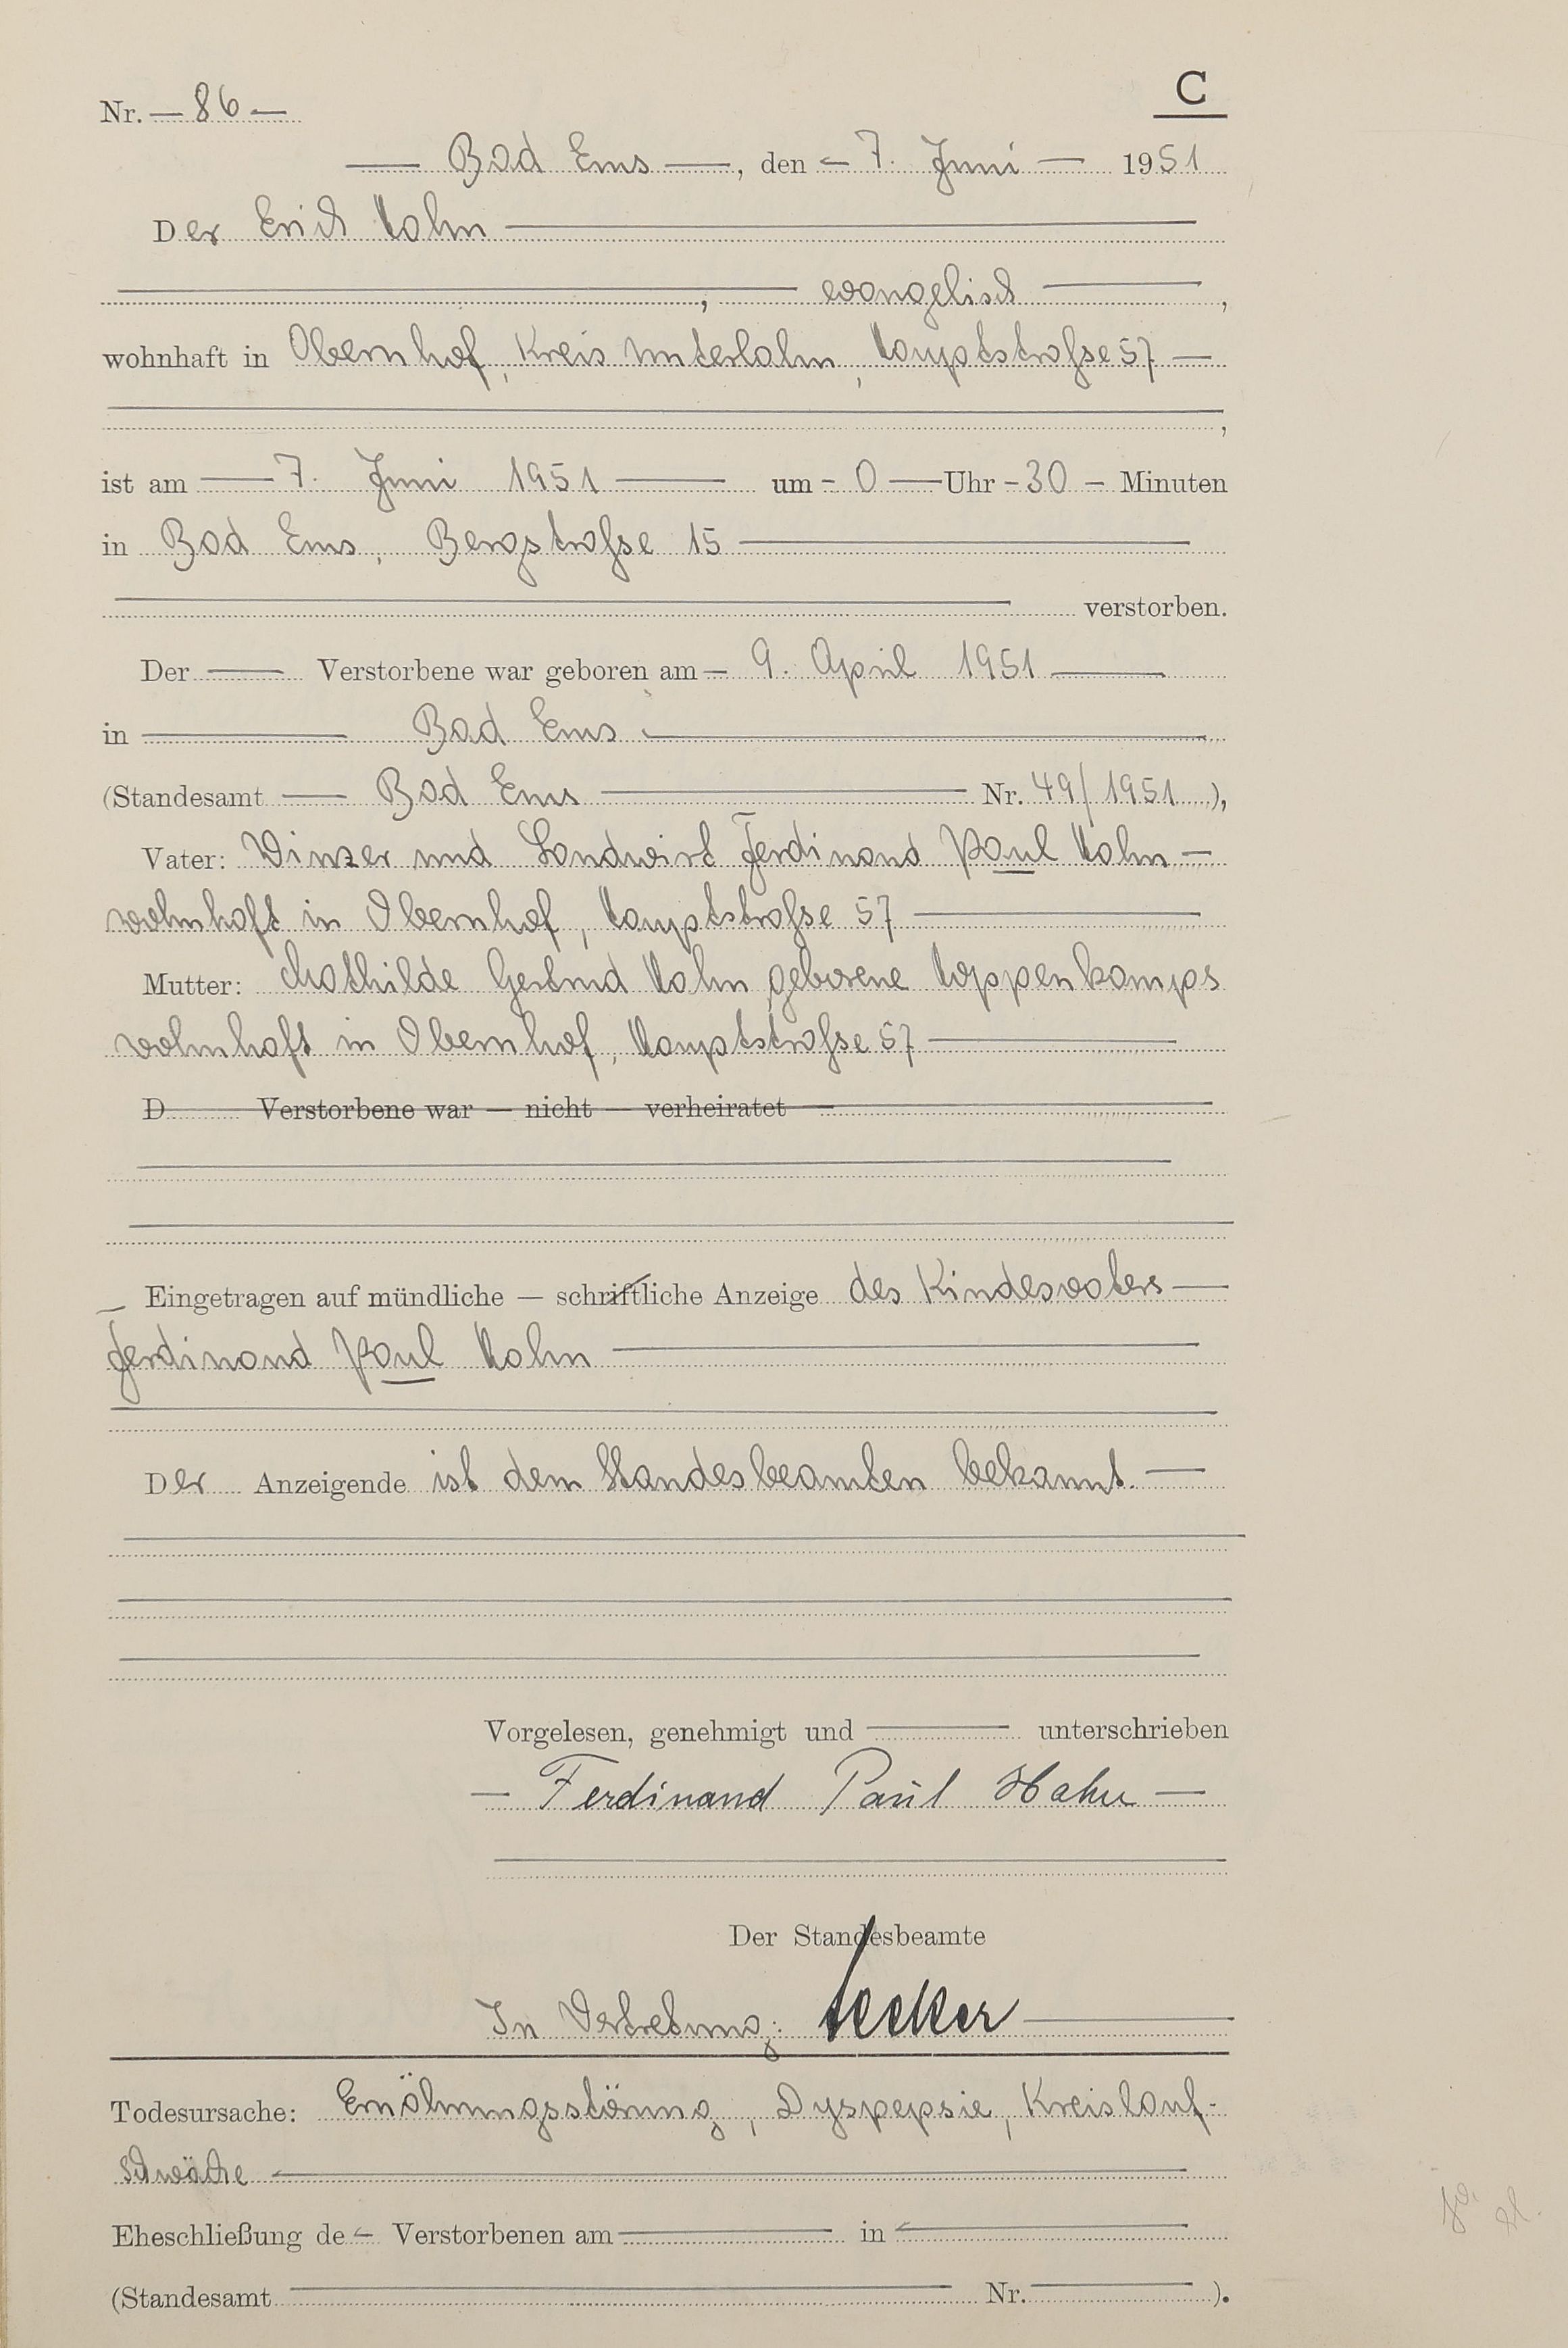 C
Nr. — 86 —
— Bad Ems —, den — 7. Juni — 1951
Der Erich Hahn —
—, — evangelisch —,
wohnhaft in Obernhof, Kreis Unterlahn, Hauptstraße 57 —
—,
ist am — 7. Juni 1951 — um - 0 — Uhr - 30 - Minuten
in Bad Ems, Bergstraße 15 —
— verstorben.
Der — Verstorbene war geboren am — 9. April 1951 —
in — Bad Ems —
(Standesamt — Bad Ems — Nr. 49/1951),
Vater: Winzer und Landwirt Ferdinand Paul Hahn —
wohnhaft in Obernhof, Hauptstraße 57 —
Mutter: Mathilde Gertrud Hahn geborene Hoppenkamps
wohnhaft in Obernhof, Hauptstraße 57 —
D Verstorbene war — nicht — verheiratet —
Eingetragen auf mündliche — schriftliche Anzeige des Kindesvaters —
Ferdinand Paul Hahn —
Der Anzeigende ist dem Standesbeamten bekannt. —
Vorgelesen, genehmigt und — unterschrieben
— Ferdinand Paul Hahn —
Der Standesbeamte
In Vertretung: Hecker —
Todesursache: Ernährungsstörung, Dyspepsie, Kreislauf-
schwäche —
Eheschließung de — Verstorbenen am — in —
(Standesamt — Nr. — ).